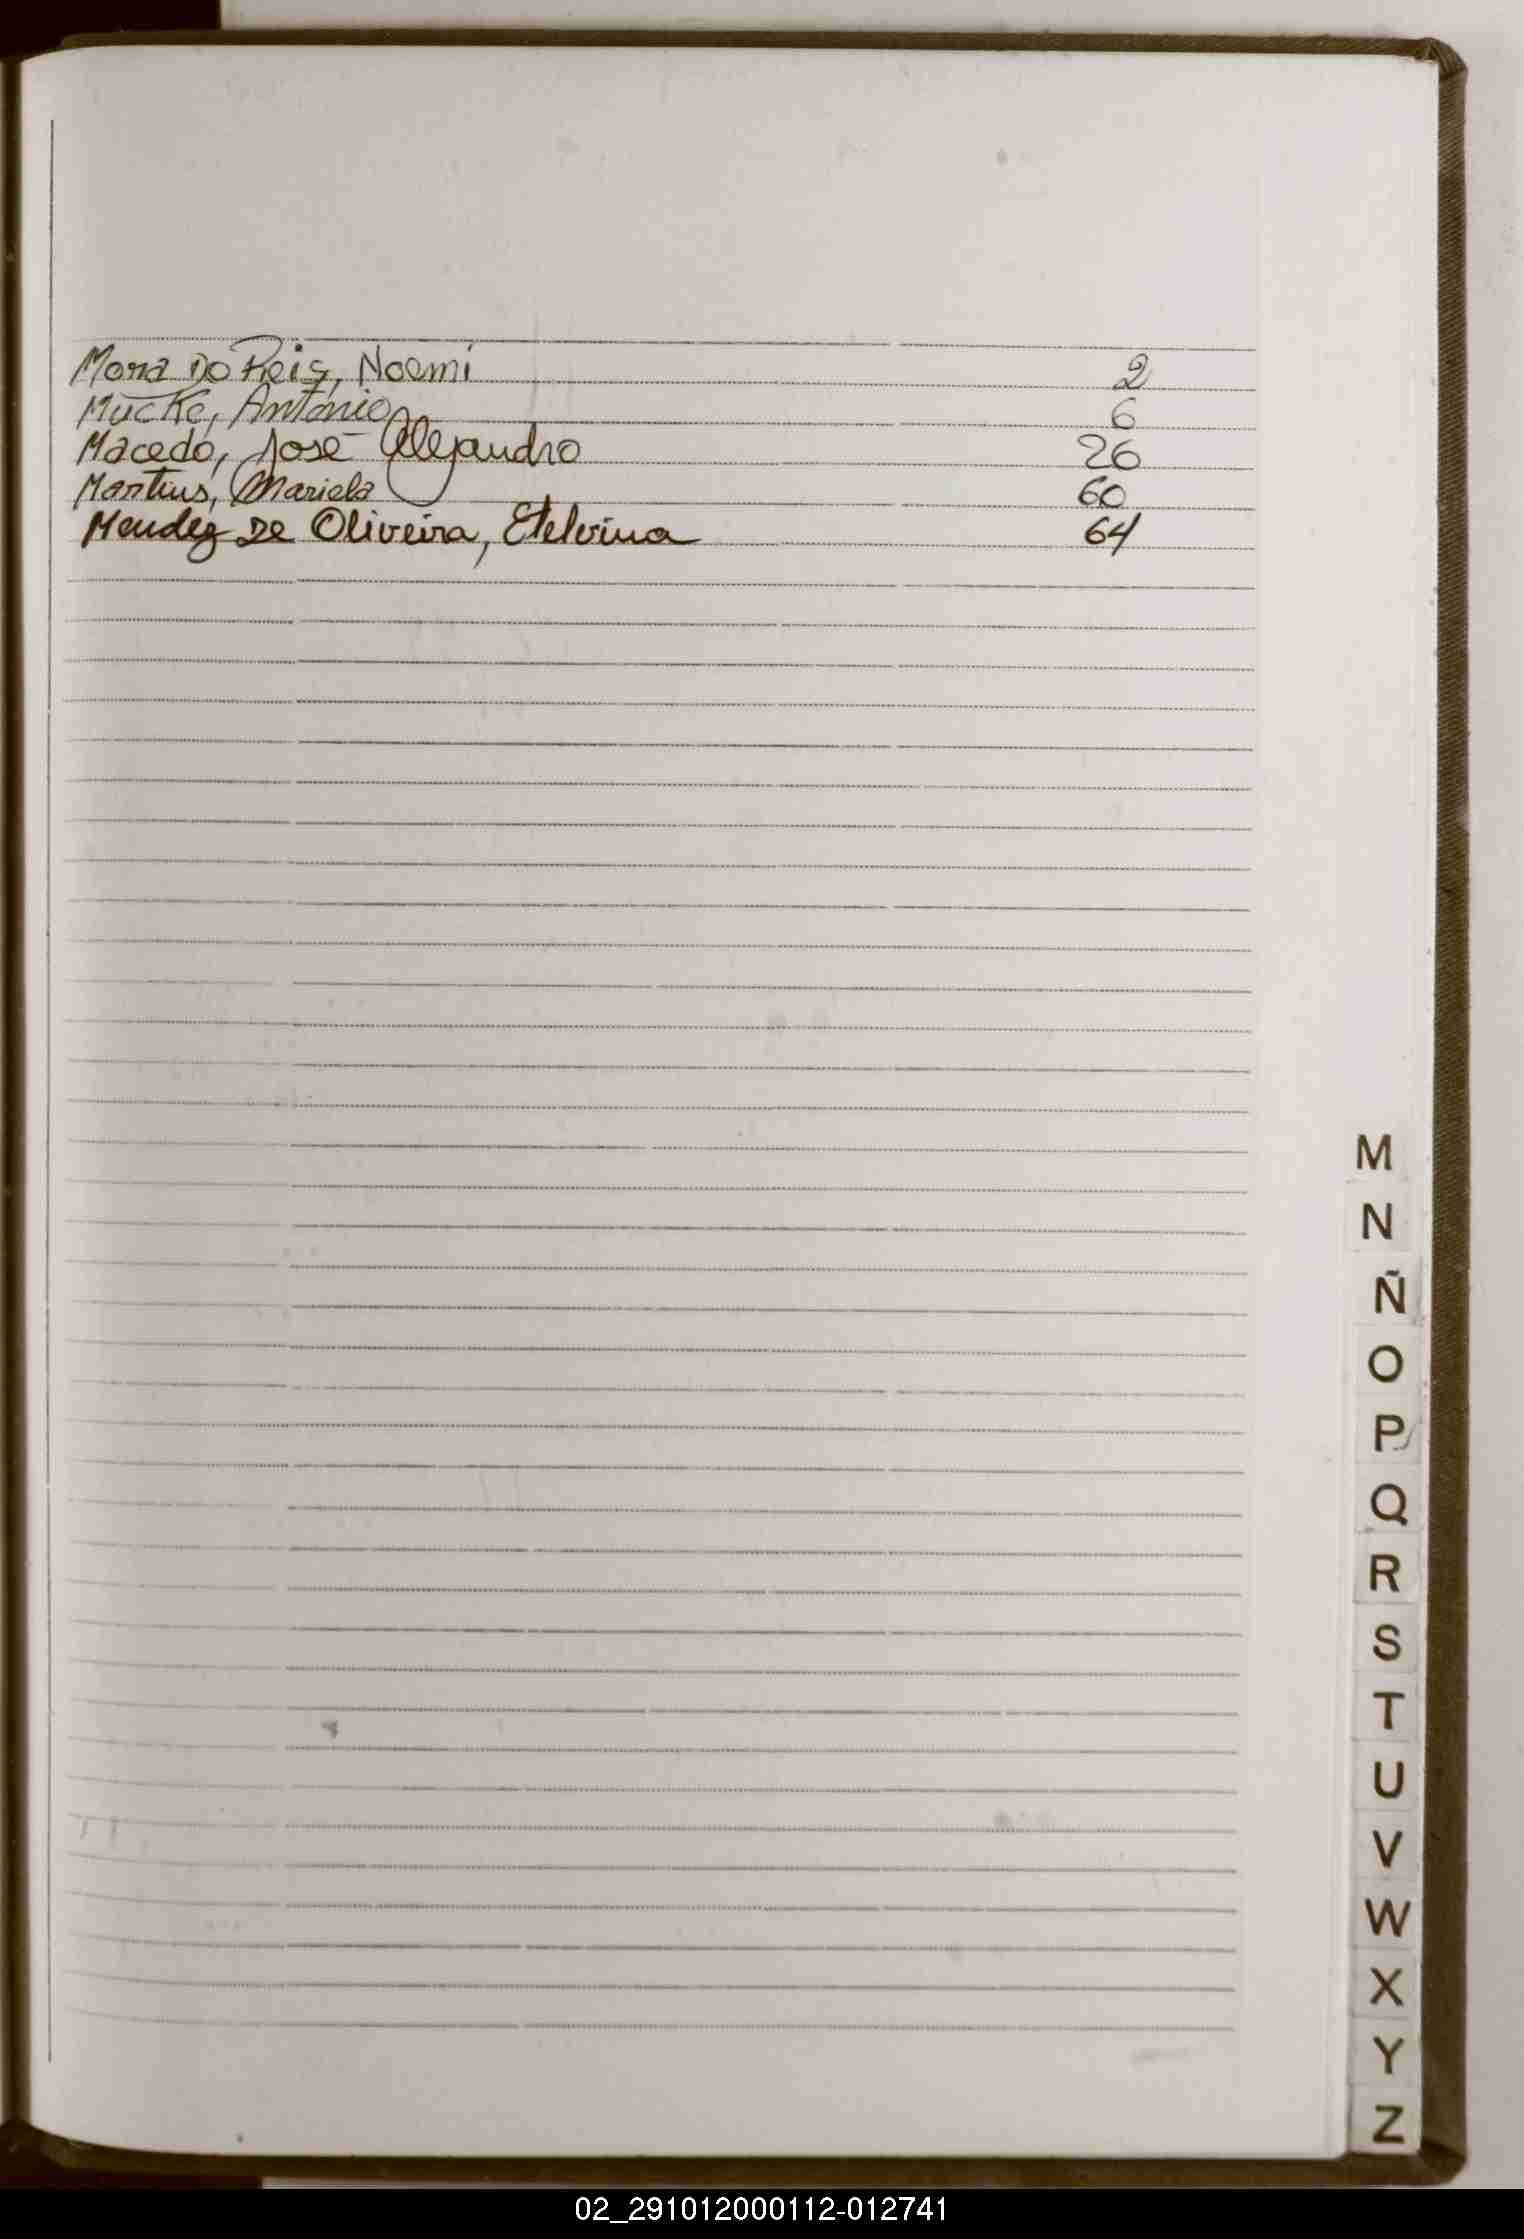 Mora Do Reis, Noemi 2
Mucke, Antonio 6
Macedo, José Alejandro 26
Martins, Mariela 60
Mendez De Oliveira, Etelvina 64
M
N
Ñ
O
P
Q
R
S
T
U
V
W
X
Y
Z
02_291012000112-012741